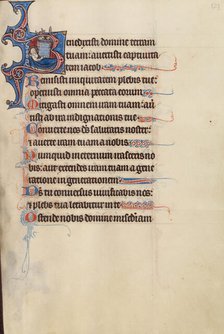 Benedixisti domine terram
tuam: auertisti captiuita
tem iacob.
Remisisti iniquitatem plebis tue:
operuisti omnia peccata eorum.
Mitigasti omnem iram tuam: a
uertisti ab ira indignationis tue
Conuerte nos deus salutaris noster:
et auerte iram tuam a nobis.
Numquid in eternum irasceris no
bis: aut extendes iram tuam a gene
ratione in generationem
Deus tu conuersus uiuificabis nos:
et plebs tua letabitur in te
Ostende nobis domine misericordiam